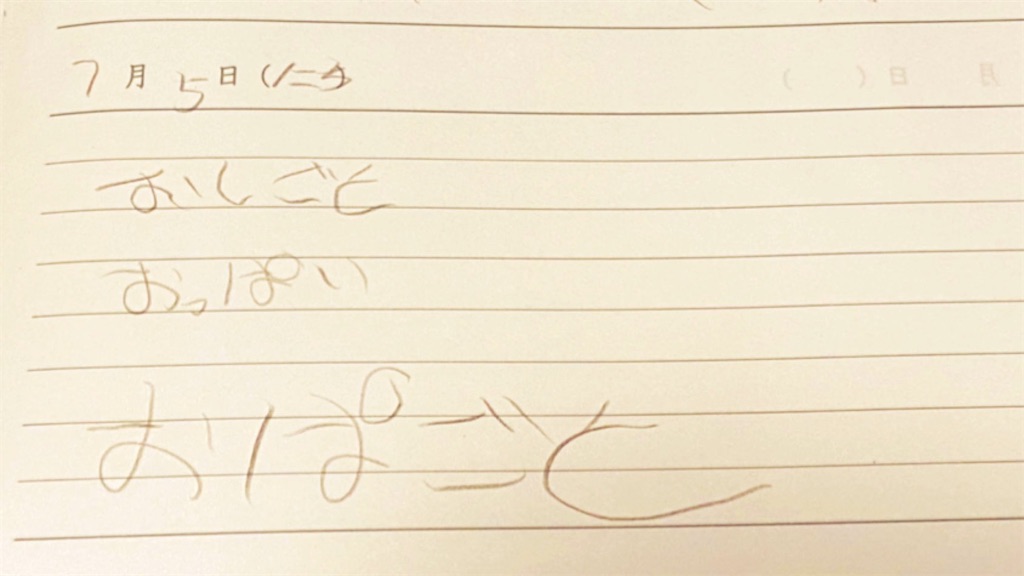 7月5日(
おしごと
おっぱい
おぱごと
月 日( )